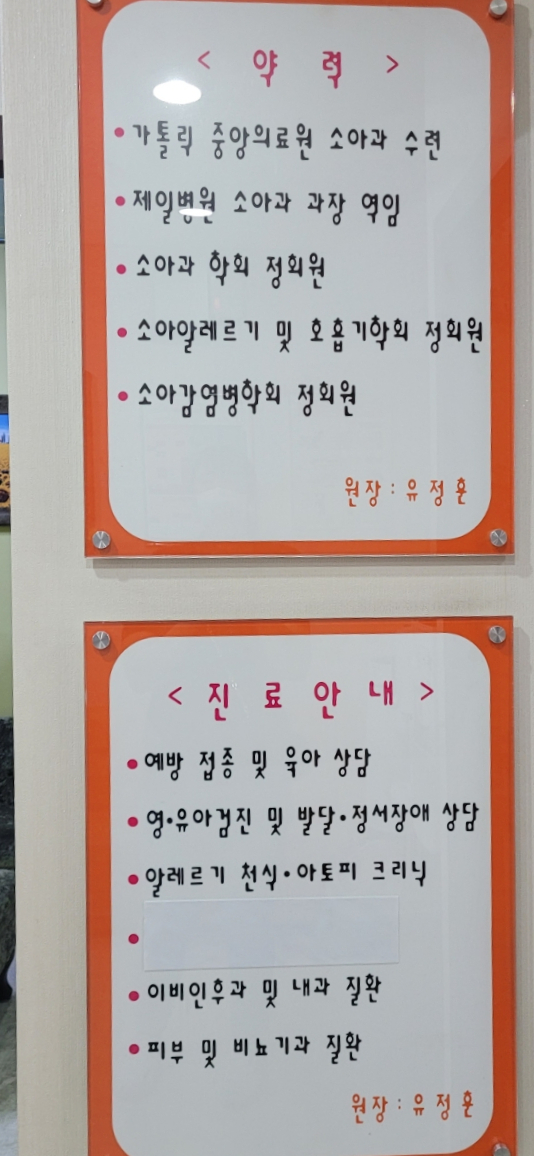 < 약 력 >
• 가톨릭 중앙의료원 소아과 수련
• 제일병원 소아과 과장 역임
• 소아과 학회 정회원
• 소아알레르기 및 호흡기학회 정회원
• 소아감염병학회 정회원
원장 : 유정훈
< 진 료 안 내 >
• 예방 접종 및 육아 상담
• 영•유아검진 및 발달•정서장애 상담
• 알레르기 천식•아토피 크리닉
•
• 이비인후과 및 내과 질환
• 피부 및 비뇨기과 질환
원장 : 유정훈